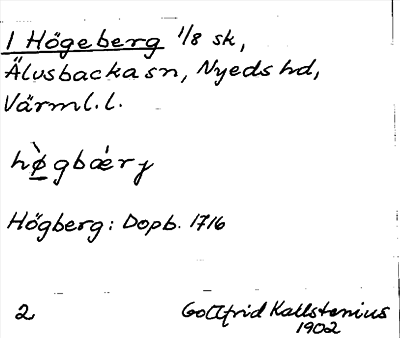 1 Högeberg 1/8 sk,
Älvsbacka sn, Nyeds hd,
Värml. l.
hø̀gbǽrj
Högberg: Dopb. 1716
2 Gottfrid Kallstenius
1902